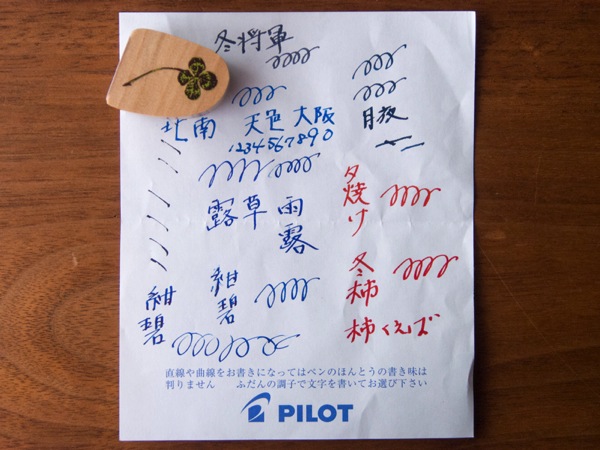 冬将軍
北南 天色 大阪
1234567890
月夜
露草
雨露
夕焼け
紺碧
紺碧
冬柿
柿くえば
直線や曲線をお書きになってはペンのほんとうの書き味は
判りません ふだんの調子で文字を書いてお選び下さい
PILOT